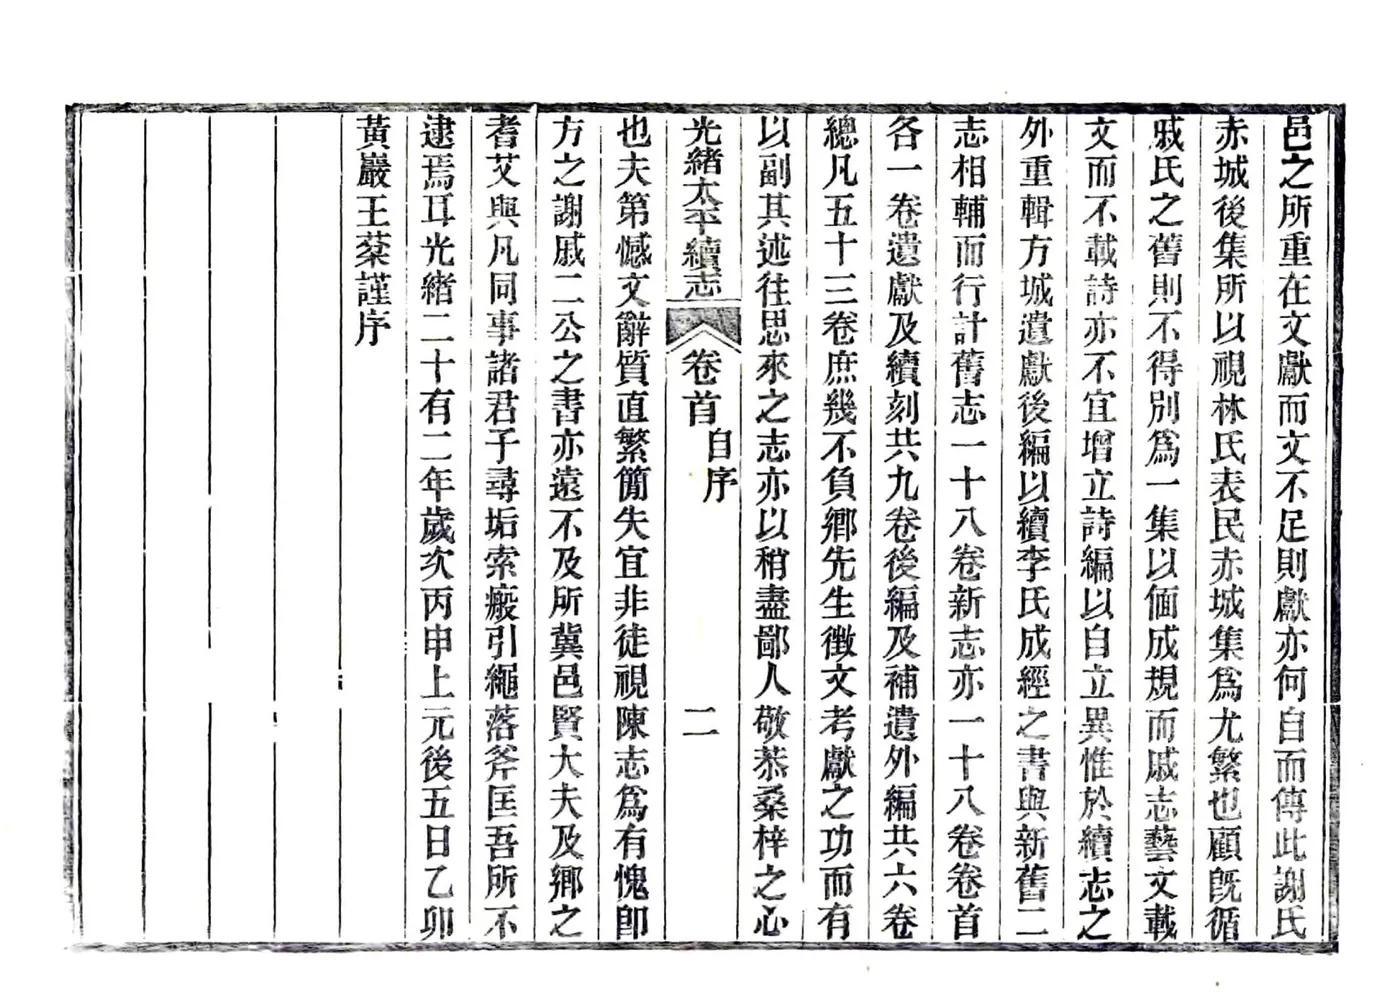 邑之所重在文獻而文不足則獻亦何自而傳此謝氏
赤城後集所以視林氏表民赤城集爲尤繁也顧旣循
戚氏之舊則不得別爲一集以偭成規而戚志藝文載
文而不載詩亦不宜增立詩編以自立異惟於續志之
外重輯方城遺獻後編以續李氏成經之書與新舊二
志相輔而行計舊志一十八卷新志亦一十八卷卷首
各一卷遺獻及續刻共九卷後編及補遺外編共六卷
總凡五十三卷庶幾不負鄉先生徵文考獻之功而有
以副其述往思來之志亦以稍盡鄙人敬恭桑梓之心
光緒太平續志 卷首 自序 二
也夫第憾文辭質直繁簡失宜非徒視陳志爲有愧卽
方之謝戚二公之書亦遠不及所冀邑賢大夫及鄉之
耆艾與凡同事諸君子尋垢索瘢引繩落斧匡吾所不
逮焉耳光緒二十有二年歲次丙申上元後五日乙卯
黃巖王棻謹序